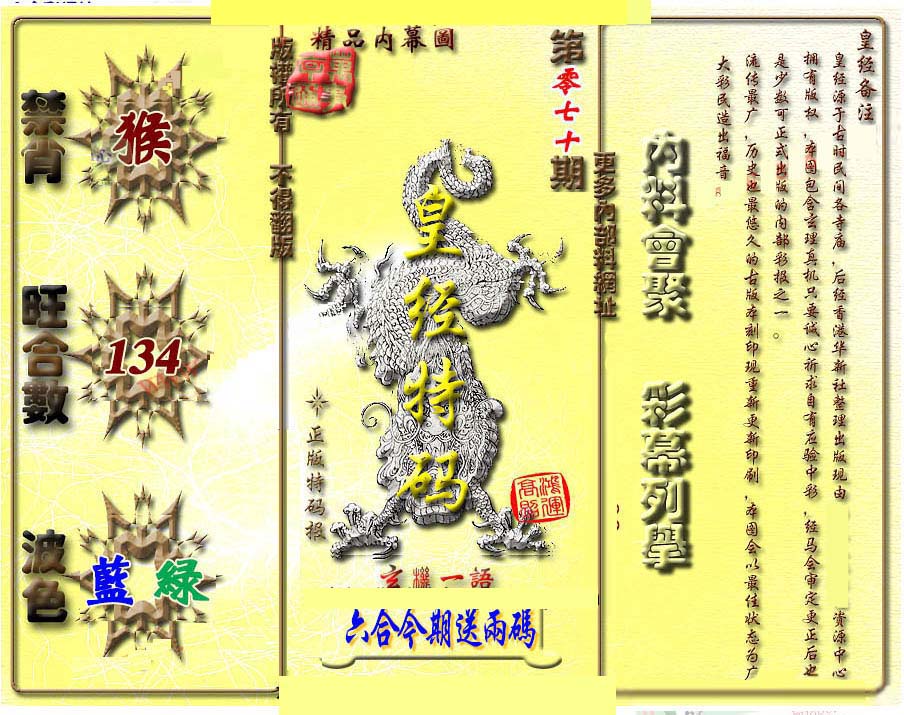 精品内幕圖
第零七十期
版權所有 不得翻版
更多內部料網址
皇经特码
正版特码报
鴻運
高照
玄機一語
六合今期送兩碼
禁肖
猴
旺合數
134
波色
藍 緑
內料會聚
彩幕列舉
皇经备注
皇经源于古时民间各寺庙,后经香港华新社整理出版现由 资源中心
拥有版权,本图包含玄理真机只要诚心祈求自有应验中彩,经马会审定更正后也
是少数可正式出版的内部彩报之一。
流传最广,历史也最悠久的古版本刻印现重新更新印刷,本图会以最佳状态为广
大彩民造出福音